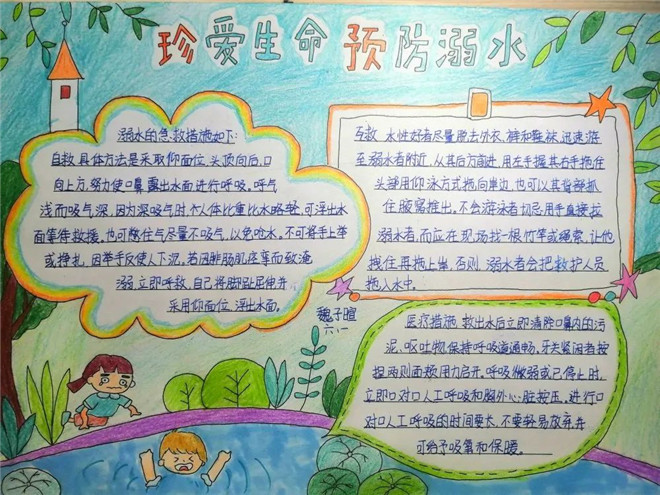 珍爱生命 预防溺水
溺水的急救措施如下:
自救 具体方法是采取仰面位,头顶向后,口
向上方,努力使口鼻露出水面进行呼吸。呼气
浅而吸气深,因为深吸气时,个人体比重比水略轻,可浮出水
面等待救援,也可憋住气尽量不吸气,以免呛水。不可将手上举
或挣扎,因举手反使人下沉,若因腓肠肌痉挛而致淹
溺,立即呼救,自己将脚趾屈伸并
采用仰面位,浮出水面。
魏子暄
六、一
互救 水性好者尽量脱去外衣、裤和鞋袜,迅速游
至溺水者附近,从其后方前进,用左手握其右手拖住
头部用仰泳方式拖向岸边,也可以其背部抓
住腋窝推出。不会游泳者切忌用手直接拉
溺水者,而应在现场找一根竹竿或绳索,让他
拽住再拖上岸,否则,溺水者会把救护人员
拖入水中。
医疗措施 救出水后立即清除口鼻内的污
泥、呕吐物,保持呼吸道通畅,牙关紧闭者按
捏两则面颊用力启开,呼吸微弱或已停止时,
立即口对口人工呼吸和胸外心脏按压,进行口
对口人工呼吸的时间要长,不要轻易放弃,并
可给予吸氧和保暖。